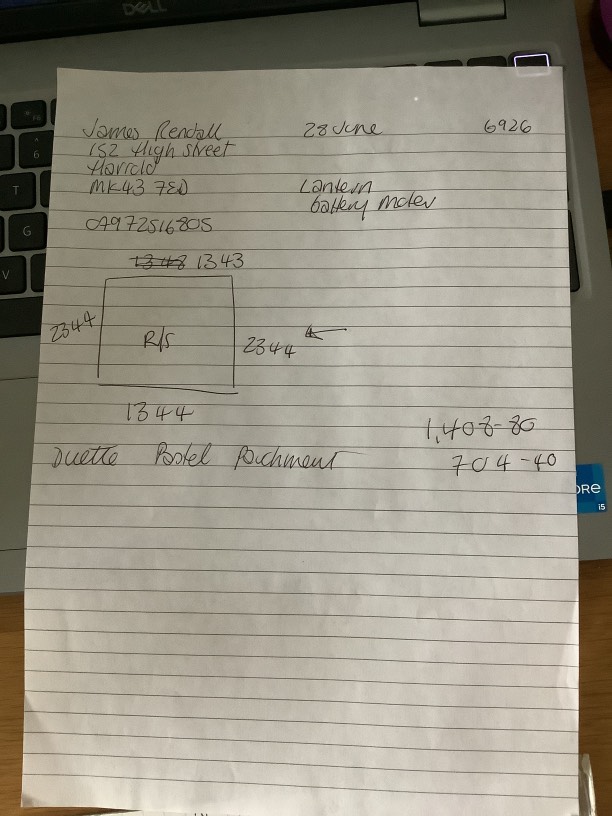 DELL
James Rendall 28 June 6926
152 High Street
Harrold
MK43 7ED Lantern
battery motor
07972516805
1348 1343
2344
R/S
2344
1344
1,408-80
Duette Pastel Parchment 704-40
ORE
i5